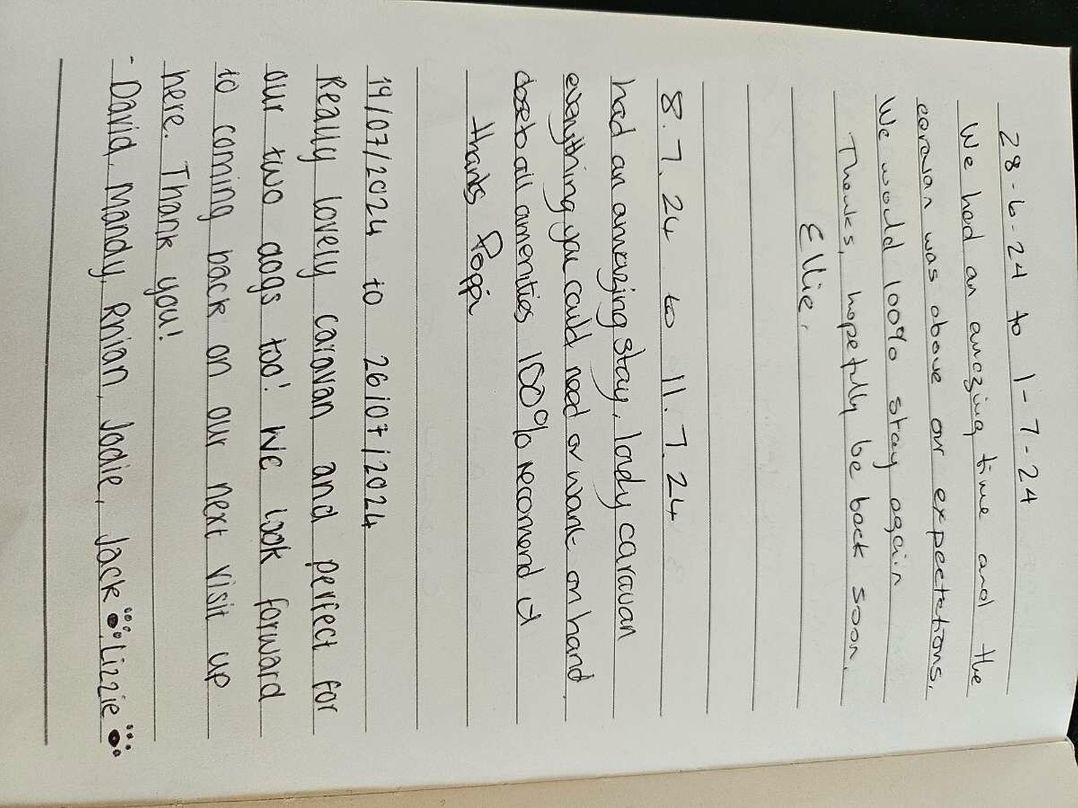 28-6-24 to 1-7-24
We had an amazing time and the
caravan was above our expectations.
We would 100% stay again
Thanks, hopefully be back soon.
Ellie.
8.7.24 to 11.7.24
had an amazing stay, lady caravan
everything you could need or want on hand.
close to all amenities 100% recomend it
thanks Poppi
19/07/2024 to 26/07/2024
Really lovely caravan and perfect for
our two dogs too! We look forward
to coming back on our next visit up
here. Thank you!
- David, Mandy, Rhian, Jodie, Jack Lizzie